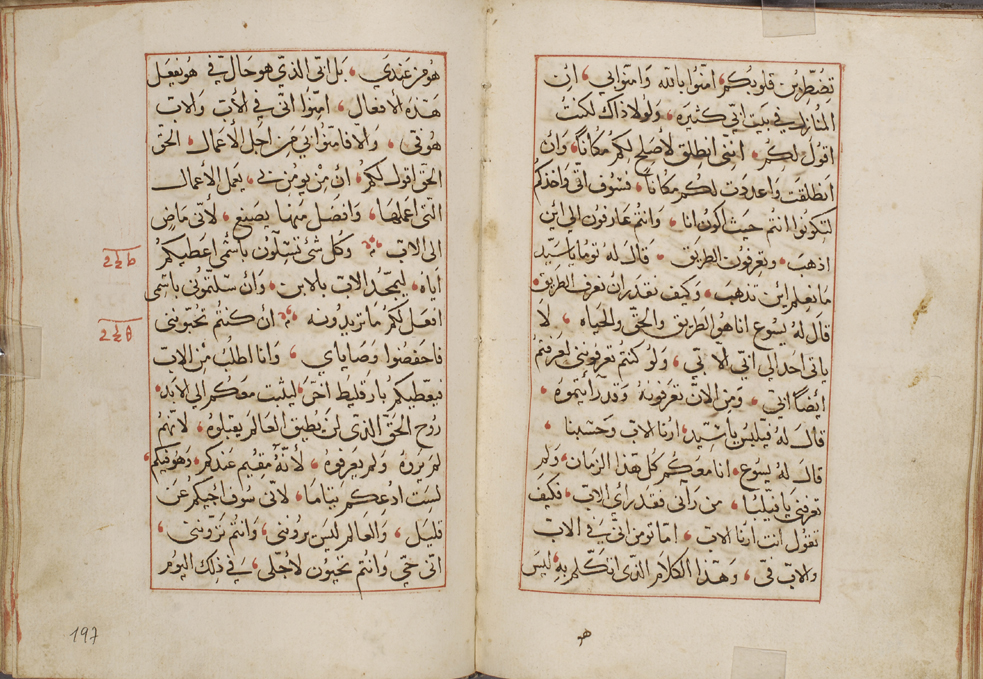 تضطربن قلوبكم امنوا بالله وامنوا بي ان
المنازل في بيت ابي كثيرة ولولا ذاك لكنت
اقول لكم انني انطلق لاصلح لكم مكاناً وان
انطلقت واعددت لكم مكاناً فسوف اتي واخذكم
لتكونوا انتم حيث اكون انا وانتم عارفون الى اين
اذهب وتعرفون الطريق قال له توما يا سيد
ما نعلم اين تذهب وكيف نقدر ان نعرف الطريق
قال له يسوع انا هو الطريق والحق والحياه لا
ياتي احد الى ابي الا بي ولو كنتم تعرفونني لعرفتم
ايضاً ابي ومن الان تعرفونه وقد رأيتموه
قال له فيلبس يا سيد ارنا الاب وحسبنا
قال له يسوع انا معكم كل هذا الزمان ولم
تعرفني يا فيلبس من رآني فقد رأى الاب فكيف
تقول انت ارنا الاب اما تومن اني في الاب
والاب في وهذا الكلام الذي اتكلم به ليس
هو
هو من عندي بل ابي الذي هو حال في هو يفعل
هذه الافعال امنوا اني في الاب والاب
هو في والا فامنوا بي من اجل الأعمال الحق
الحق اقول لكم ان من يومن بي يعمل الأعمال
التي اعملها وافضل منها يصنع لأني ماضٍ
الى الاب وكل شئ تسألون باسمي اعطيكم
اياه ليمجد الاب بالابن وان سالتموني باسمي
افعل لكم ما تريدونه ان كنتم تحبونني
فاحفضوا وصاياي وانا اطلب من الاب
فيعطيكم بارقليط اخر ليثبت معكم الى الابد
روح الحق الذي لن يطيق العالم يقبلوه لأنهم
لم يروه ولم يعرفوه لأنه مقيم عندكم وهو فيكم
لست ادعكم يتاما لأني سوف اجيكم عن
قليل والعالم ليس يروني وانتم تروني
اني حي وانتم تحيون لأجلي في ذلك اليوم
197